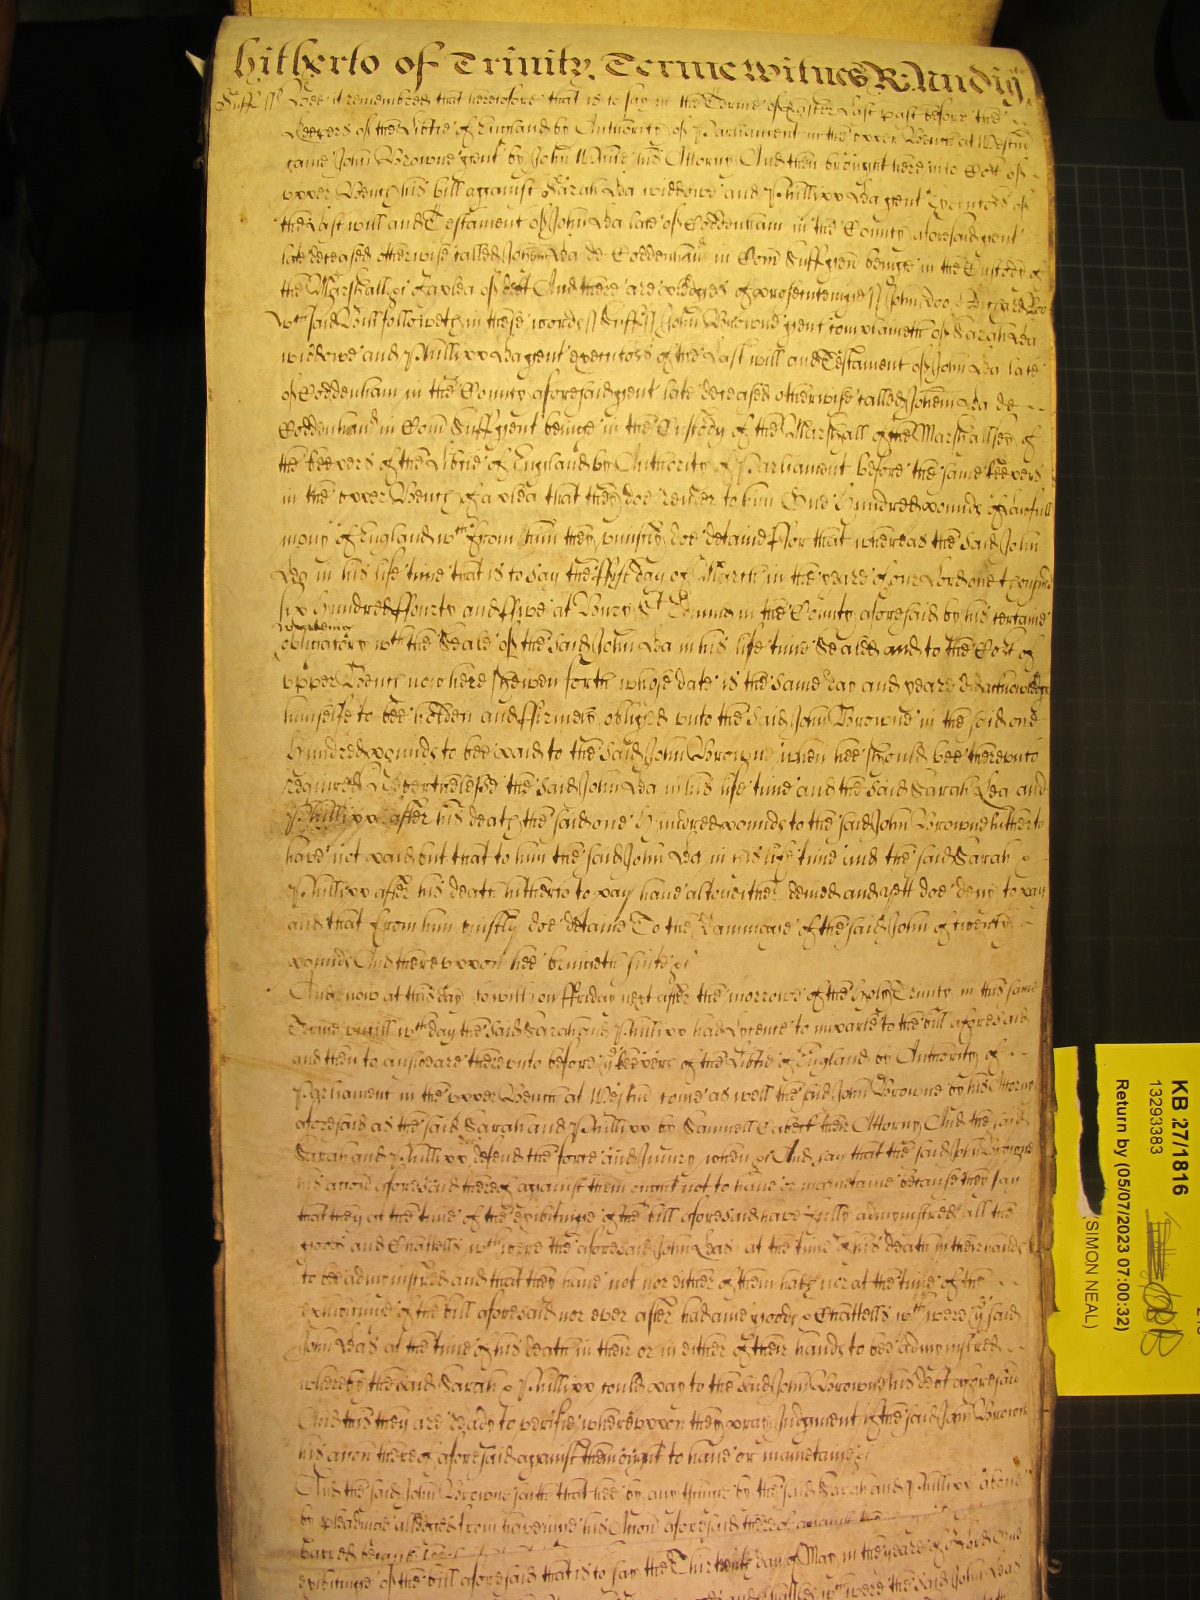 hitherto of Trinity Terme witnes R: Nudig
Suff ss Bee it remembred that heretofore that is to say in the Terme of Easter last past before the
Keepers of the Libtie of England by Authority of Parliament in the upper Bench at Westm
came John Browne gent by John White his Attorny And then brought here into Cort of
upper Bench his bill against Sarah Lea widowe and Phillipp Lea gent Executors of
the last will and Testament of John Lea late of Coddenham in the County aforesaid gent
late deceased otherwise called Johem Lea de Coddenham in Com Suff gen beinge in the Custody of
the Marshall &c of a plea of debt And there are pledges of prosecuteinge ss John Doe & Richard Roo
wch said Bill followeth in these words ss Suff ss John Browne gent complaineth of Sarah Lea
widowe and Phillipp Lea gent executors of the last will and Testament of John Lea late
of Coddenham in the County aforesaid gent late deceased otherwise called Johem Lea de
Coddenham in Com Suff gent beinge in the Custody of the Marshall of the Marshallsey of
the keepers of the Libtie of England by Authority of Parliament before the same keepers
in the upper Bench of a plea that they doe render to him One hundred pounds of lawfull
mony of England wch from him they uniustly doe detaine ffor that whereas the said John
Lea in his life time that is to say the ffyrst day of March in the yeare of our Lord one thousand
six hundred ffourty and ffive at Bury St Edmunds in the County aforesaid by his certaine
writeing
obligatory wth the Seale of the said John Lea in his life time Sealed and to the Cort of
upper Bench now here shewen forth whose date is the same day and yeare did acknowledge
himselfe to bee holden and ffirmely obliged unto the said John Browne in the said one
hundred pounds to bee paid to the said John Browne when hee should bee thereunto
required Neverthelesse the said John Lea in his life time and the said Sarah Lea and
Phillipp after his death the said one hundred pounds to the said John Browne hitherto
have not paid but that to him the said John Lea in his life time and the said Sarah &
Phillipp after his death hitherto to pay have altogether denied and yett doe deny to pay
and that from him uniustly doe detaine To the Dammage of the said John of twenty
pounds And thereuppon hee bringeth suite &c
And now at this day to witt on ffriday next after the morrowe of the holy Trinity in this same
Terme untill wch day the said Sarah and Phillipp had Licence to imparle to the bill aforesaid
and then to answeare thereunto before ye keepers of the Libtie of England by Authority of
Parliament in the upper Bench at Westm come as well the said John Browne by his Attorny
aforesaid as the said Sarah and Phillipp by Samuell their Attorny And the said
Sarah and Phillipp doe defend the force and Iniury when &c And say that the said John Browne
his accon aforesaid thereof against them ought not to have or mainetaine because they say
that they at the time of the exhibitinge of the bill aforesaid have fully administred all the
goods and Chattells wch were the aforesaid John Leas at the time of his death in their hands
to bee administred and that they have not nor either of them hath nor at the time of the
exhibitinge of the bill aforesaid nor ever after had anie goods & Chattells wch were ye said
John Leas at the time of his death in their or in either of their hands to bee administred
whereby the said Sarah & Phillipp could pay to the said John Browne his debt aforesaid
And this they are ready to verifie whereuppon they pray Judgment if the said John Browne
his accon thereof aforesaid against them ought to have or mainetaine &c
And the said John Browne saith that hee by any thinge by the said Sarah and Phillipp above
by pleadinge alledged from haveinge his Accon aforesaid thereof against
barred because
exhibitinge of the bill aforesaid that is to say the Thirtenth day of May in the yeare of or Lord One
and Chattells wch were the said John Leas
KB 27/1816
13293383
Return by (05/07/2023 07:00:32)
(SIMON NEAL)